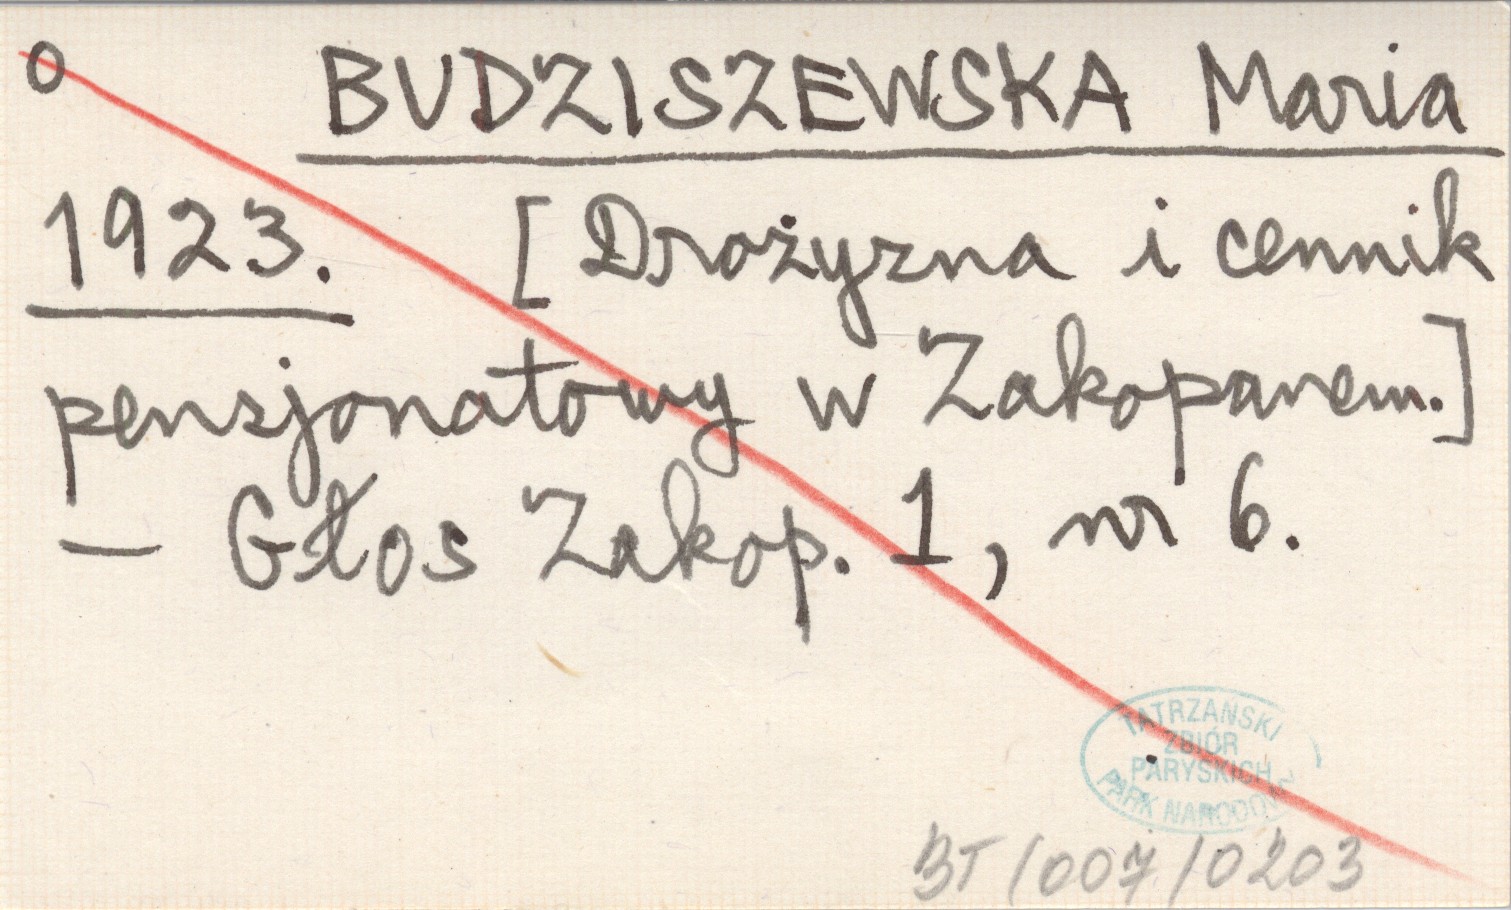 o BUDZISZEWSKA Maria
1923. [Drożyzna i cennik
pensjonatowy w Zakopanem.]
— Głos Zakop. 1, nr 6.
TATRZAŃSKI
ZBIÓR
PARYSKICH
PARK NARODOWY
BT/007/0203